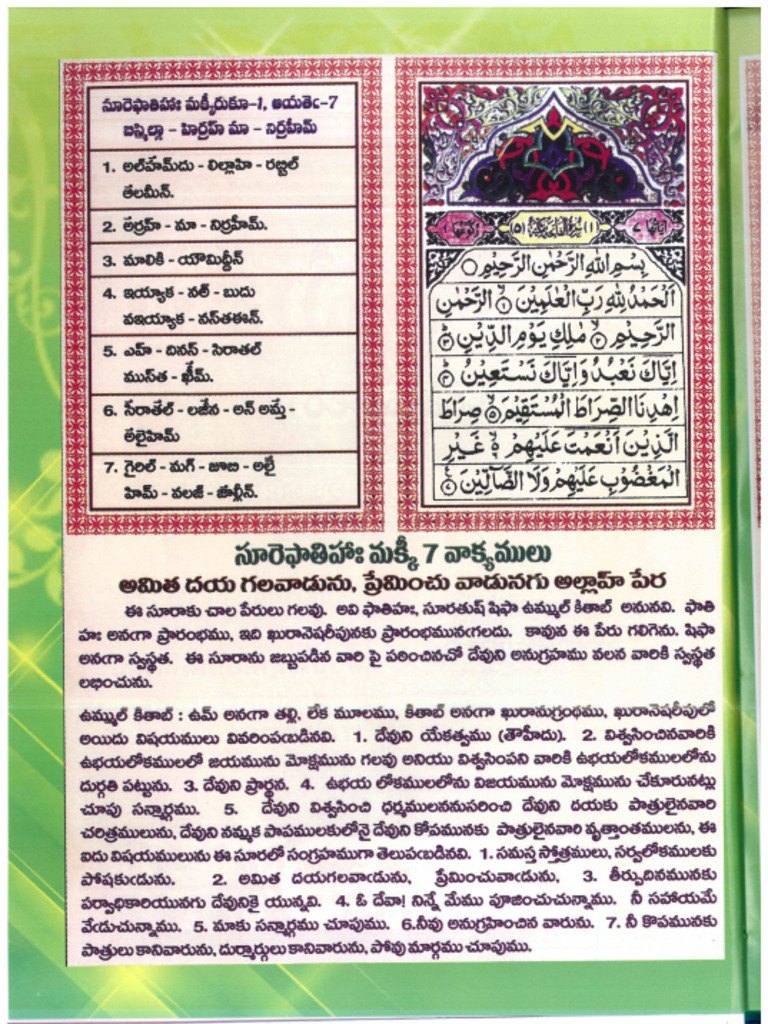 సూరెఫాతిహాః మక్కీరుకూ-1, ఆయతెఁ-7
బిస్మిల్లా - హిర్రహ్ మా - నిర్రహీమ్
1. అల్‌హేమ్‌దు - లిల్లాహి - రబ్బిల్
తేలమీన్.
2. తేర్రహ్ - మా - నిర్రహీమ్.
3. మాలికి - యౌమిద్దీన్
4. ఇయ్యాక - నల్ - బుదు
వఇయ్యాక - నస్‌తఈన్.
5. ఎహ్ - దినస్ - సిరాతల్
ముస్త - ఖీమ్.
6. సీరాతేల్ - లజేన - అన్ అమ్తే -
తేలైహిమ్
7. గైరిల్ - మగ్ - జూబి - అలై
హిమ్ - వలజ్ - జాల్లీన్.
اٰيَاتُهَا ٧ (١) سُوْرَةُ الْفَاتِحَةِ مَكِّيَّةٌ (٥) رُكُوْعُهَا ١
بِسْمِ اللهِ الرَّحْمٰنِ الرَّحِيْمِ ○
اَلْحَمْدُ لِلّٰهِ رَبِّ الْعٰلَمِيْنَ ۙ١ الرَّحْمٰنِ
الرَّحِيْمِ ۙ٢ مٰلِكِ يَوْمِ الدِّيْنِ ؕ٣
اِيَّاكَ نَعْبُدُ وَاِيَّاكَ نَسْتَعِيْنُ ؕ٤
اِهْدِنَا الصِّرَاطَ الْمُسْتَقِيْمَ ۙ٥ صِرَاطَ
الَّذِيْنَ اَنْعَمْتَ عَلَيْهِمْ ۙ٦ غَيْرِ
الْمَغْضُوْبِ عَلَيْهِمْ وَلَا الضَّآلِّيْنَ ٧
సూరెఫాతిహాః మక్కీ 7 వాక్యములు
అమిత దయ గలవాడును, ప్రేమించు వాడునగు అల్లాహ్ పేర
ఈ సూరాకు చాల పేరులు గలవు. అవి ఫాతిహః, సూరతుష్ షిఫా ఉమ్ముల్ కితాబ్ అనునవి. ఫాతి
హః అనఁగా ప్రారంభము, ఇది ఖురానెషరీపునకు ప్రారంభమునఁగలదు. కావున ఈ పేరు గలిగెను. షిఫా
అనఁగా స్వస్థత. ఈ సూరాను జబ్బుపడిన వారి పై పఠించినచో దేవుని అనుగ్రహము వలన వారికి స్వస్థత
లభించును.
ఉమ్ముల్ కితాబ్ : ఉమ్ అనఁగా తల్లి, లేక మూలము, కితాబ్ అనఁగా ఖురానుగ్రంథము, ఖురానెషరీపులో
అయిదు విషయములు వివరింపఁబడినవి. 1. దేవుని యేకత్వము (తౌహీదు). 2. విశ్వసించినవారికి
ఉభయలోకములలో జయమును మోక్షమును గలవు అనియు విశ్వసింపని వారికి ఉభయలోకములలోను
దుర్గతి పట్టును. 3. దేవుని ప్రార్థన. 4. ఉభయ లోకములలోను విజయమును మోక్షమును చేకూరునట్లు
చూపు సన్మార్గము. 5. దేవుని విశ్వసించి ధర్మములననుసరించి దేవుని దయకు పాత్రులైనవారి
చరిత్రములును, దేవుని నమ్మక పాపములకులోనై దేవుని కోపమునకు పాత్రులైనవారి వృత్తాంతములను, ఈ
ఐదు విషయములును ఈ సూరలో సంగ్రహముగా తెలుపఁబడినవి. 1. సమస్త స్తోత్రములు, సర్వలోకములకు
పోషకుఁడును. 2. అమిత దయగలవాఁడును, ప్రేమించువాఁడును, 3. తీర్పుదినమునకు
సర్వాధికారియునగు దేవునికై యున్నవి. 4. ఓ దేవా! నిన్నే మేము పూజించుచున్నాము. నీ సహాయమే
వేఁడుచున్నాము. 5. మాకు సన్మార్గము చూపుము. 6.నీవు అనుగ్రహించిన వారును. 7. నీ కొపమునకు
పాత్రులు కానివారును, దుర్మార్గులు కానివారును, పోవు మార్గము చూపుము.